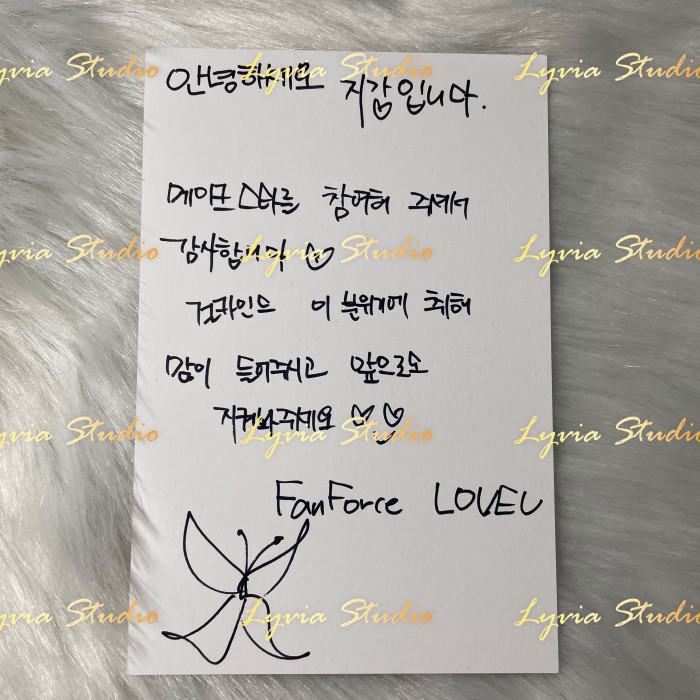 Lyria Studio Lyria Studio Lyria Studio
안녕하세요 지강입니다.
메이크스타를 참여해 주셔서
Lyria Studio Lyria Studio Lyria Studio
감사합니다 ♡
걸카인드 이 분위기에 취해
많이 들어주시고 앞으로도
지켜봐주세요 ♡♡
Lyria Studio Lyria Studio Lyria Studio
FanForce LOVEU
Lyria Studio Lyria Studio Lyria Studio